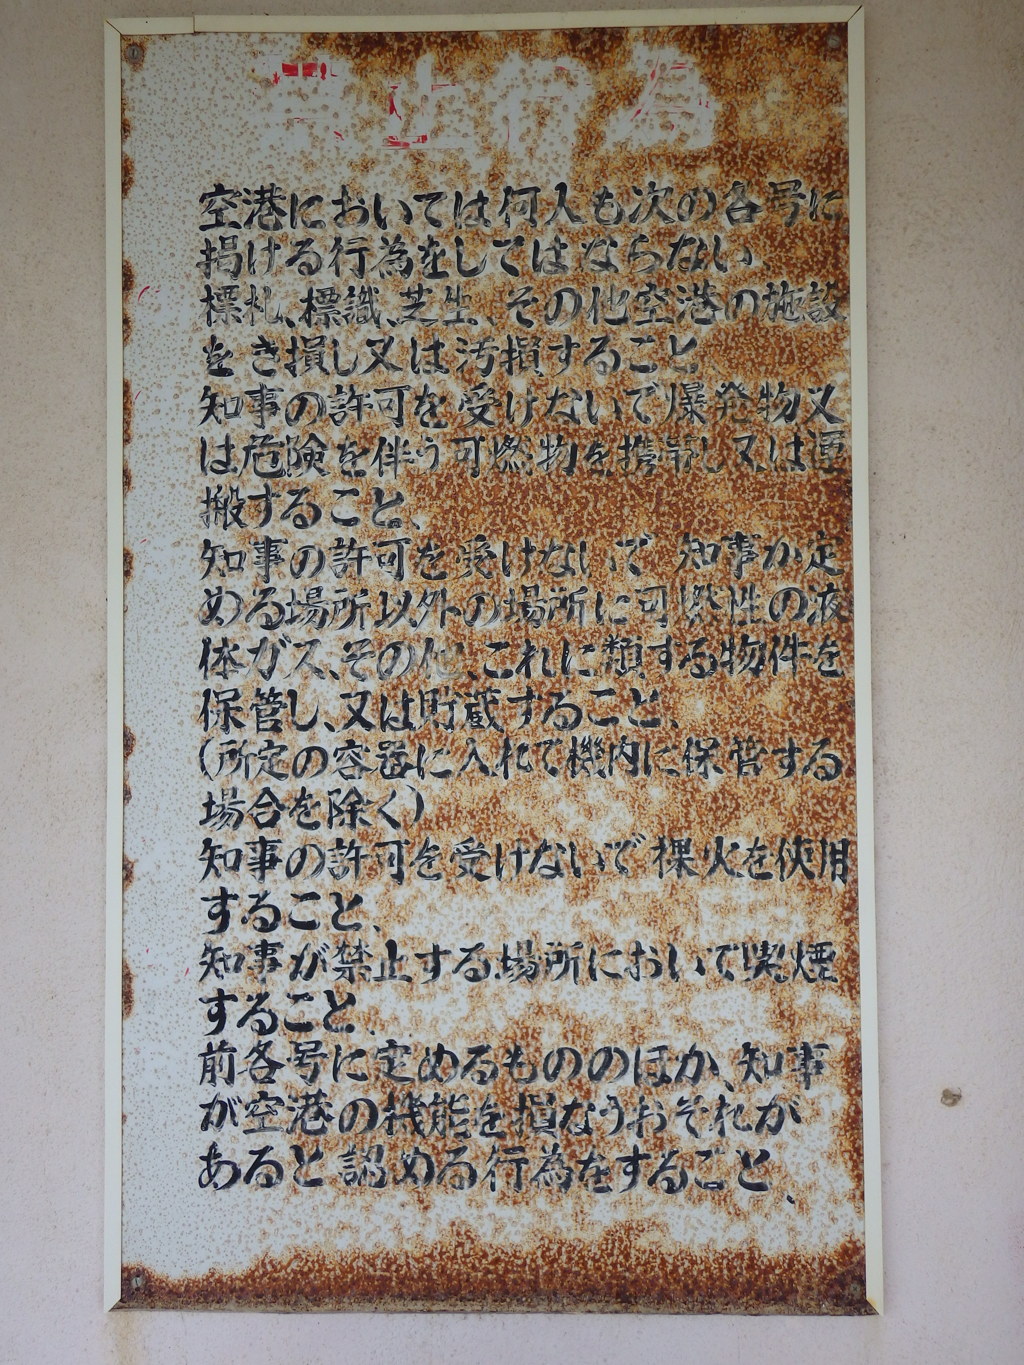 禁止行為
空港においては何人も次の各号に
掲げる行為をしてはならない
標札、標識、芝生、その他空港の施設
をき損し又は汚損すること
知事の許可を受けないで爆発物又
は危険を伴う可燃物を携帯し又は運
搬すること、
知事の許可を受けないで 知事が定
める場所以外の場所に可燃性の液
体ガス、その他、これに類する物件を
保管し、又は貯蔵すること、
(所定の容器に入れて機内に保管する
場合を除く)
知事の許可を受けないで 裸火を使用
すること、
知事が禁止する場所において喫煙
すること、
前各号に定めるもののほか、知事
が空港の機能を損なうおそれが
あると認める行為をすること、